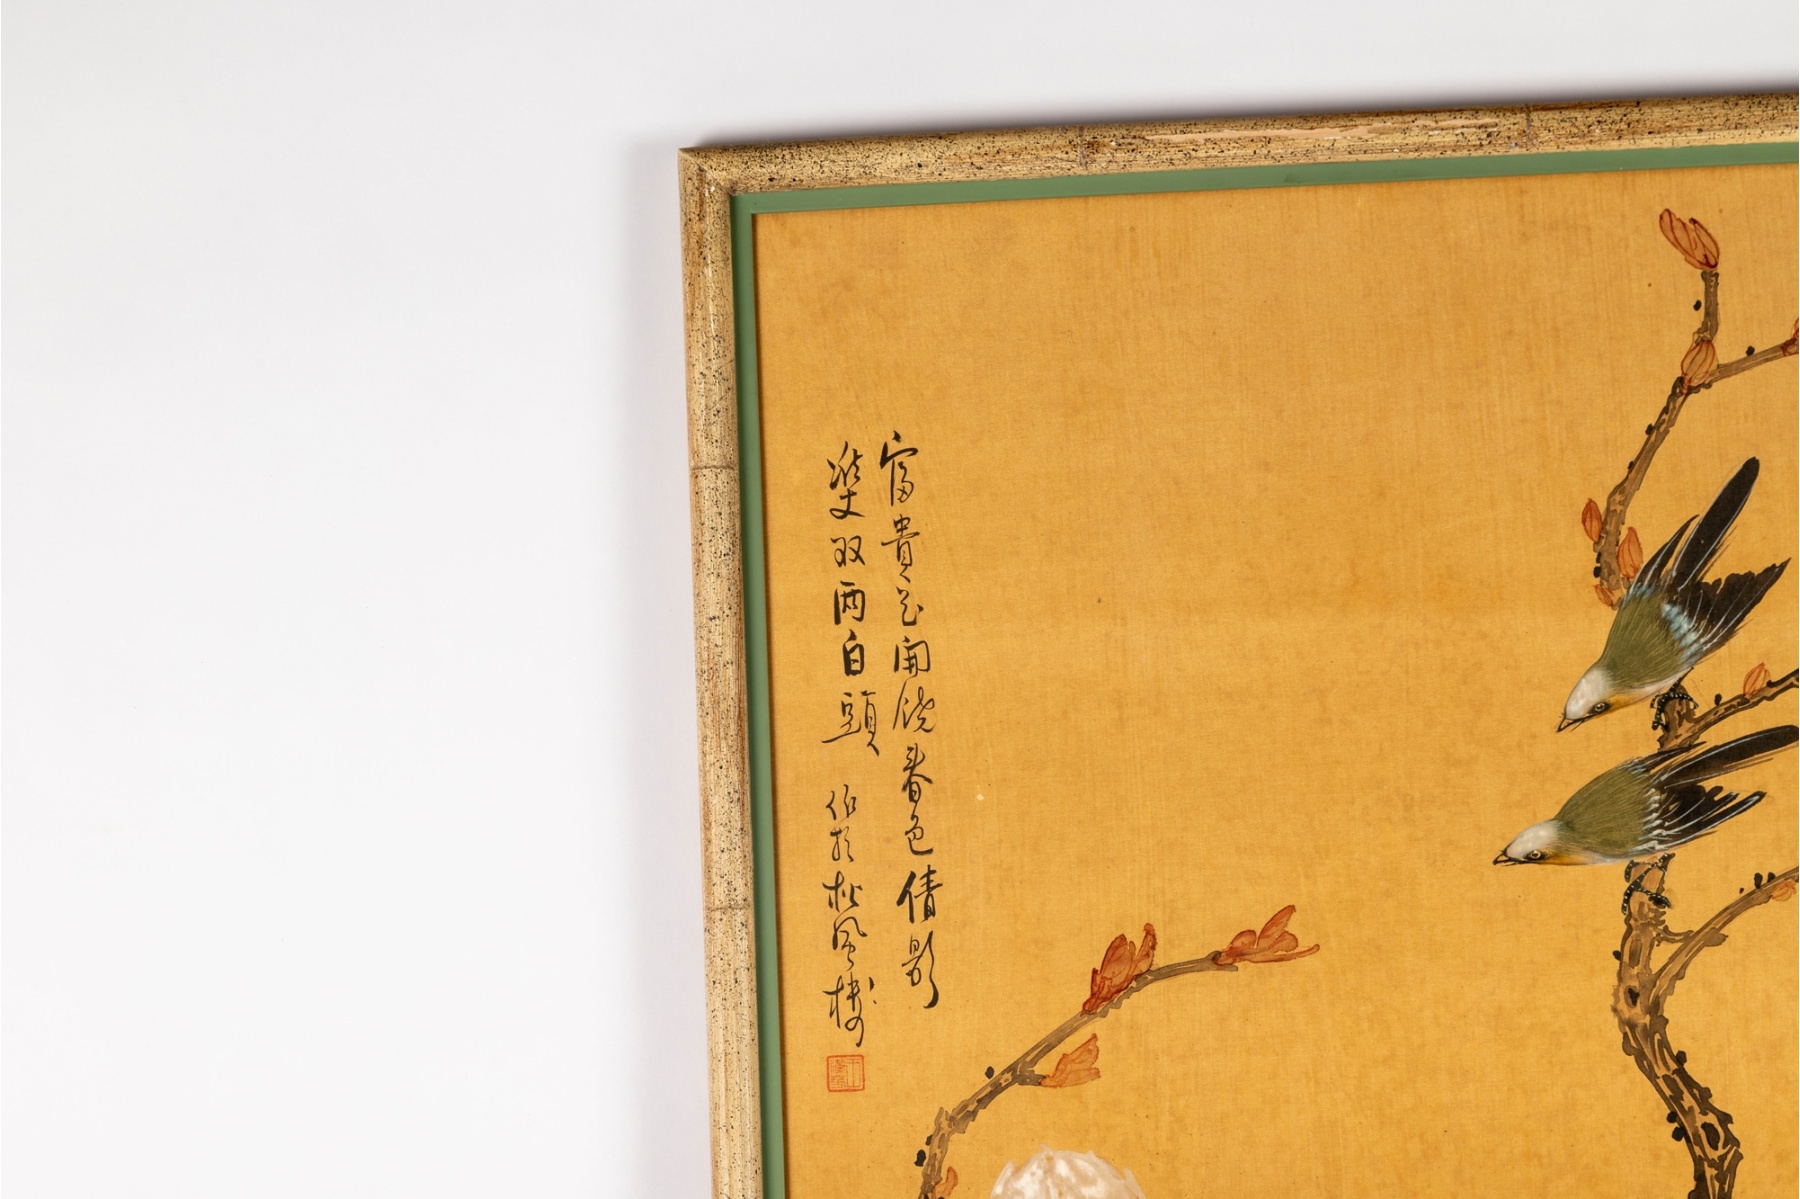 富貴花開饒春色倩影
雙双両白頭 作於松風樓